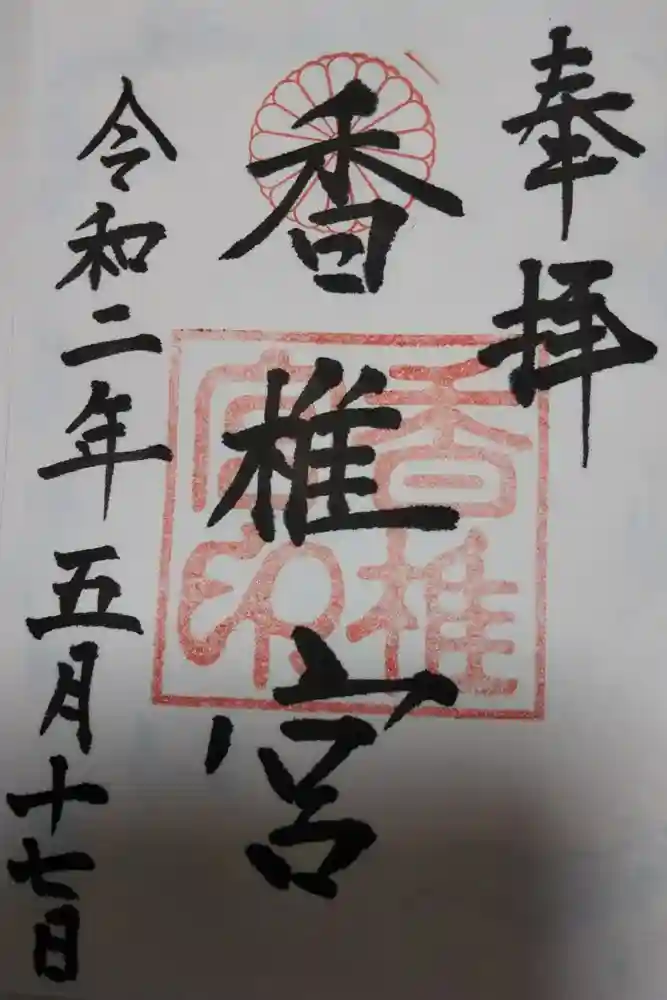 奉拝
香椎宮
香椎宮印
令和二年五月十七日